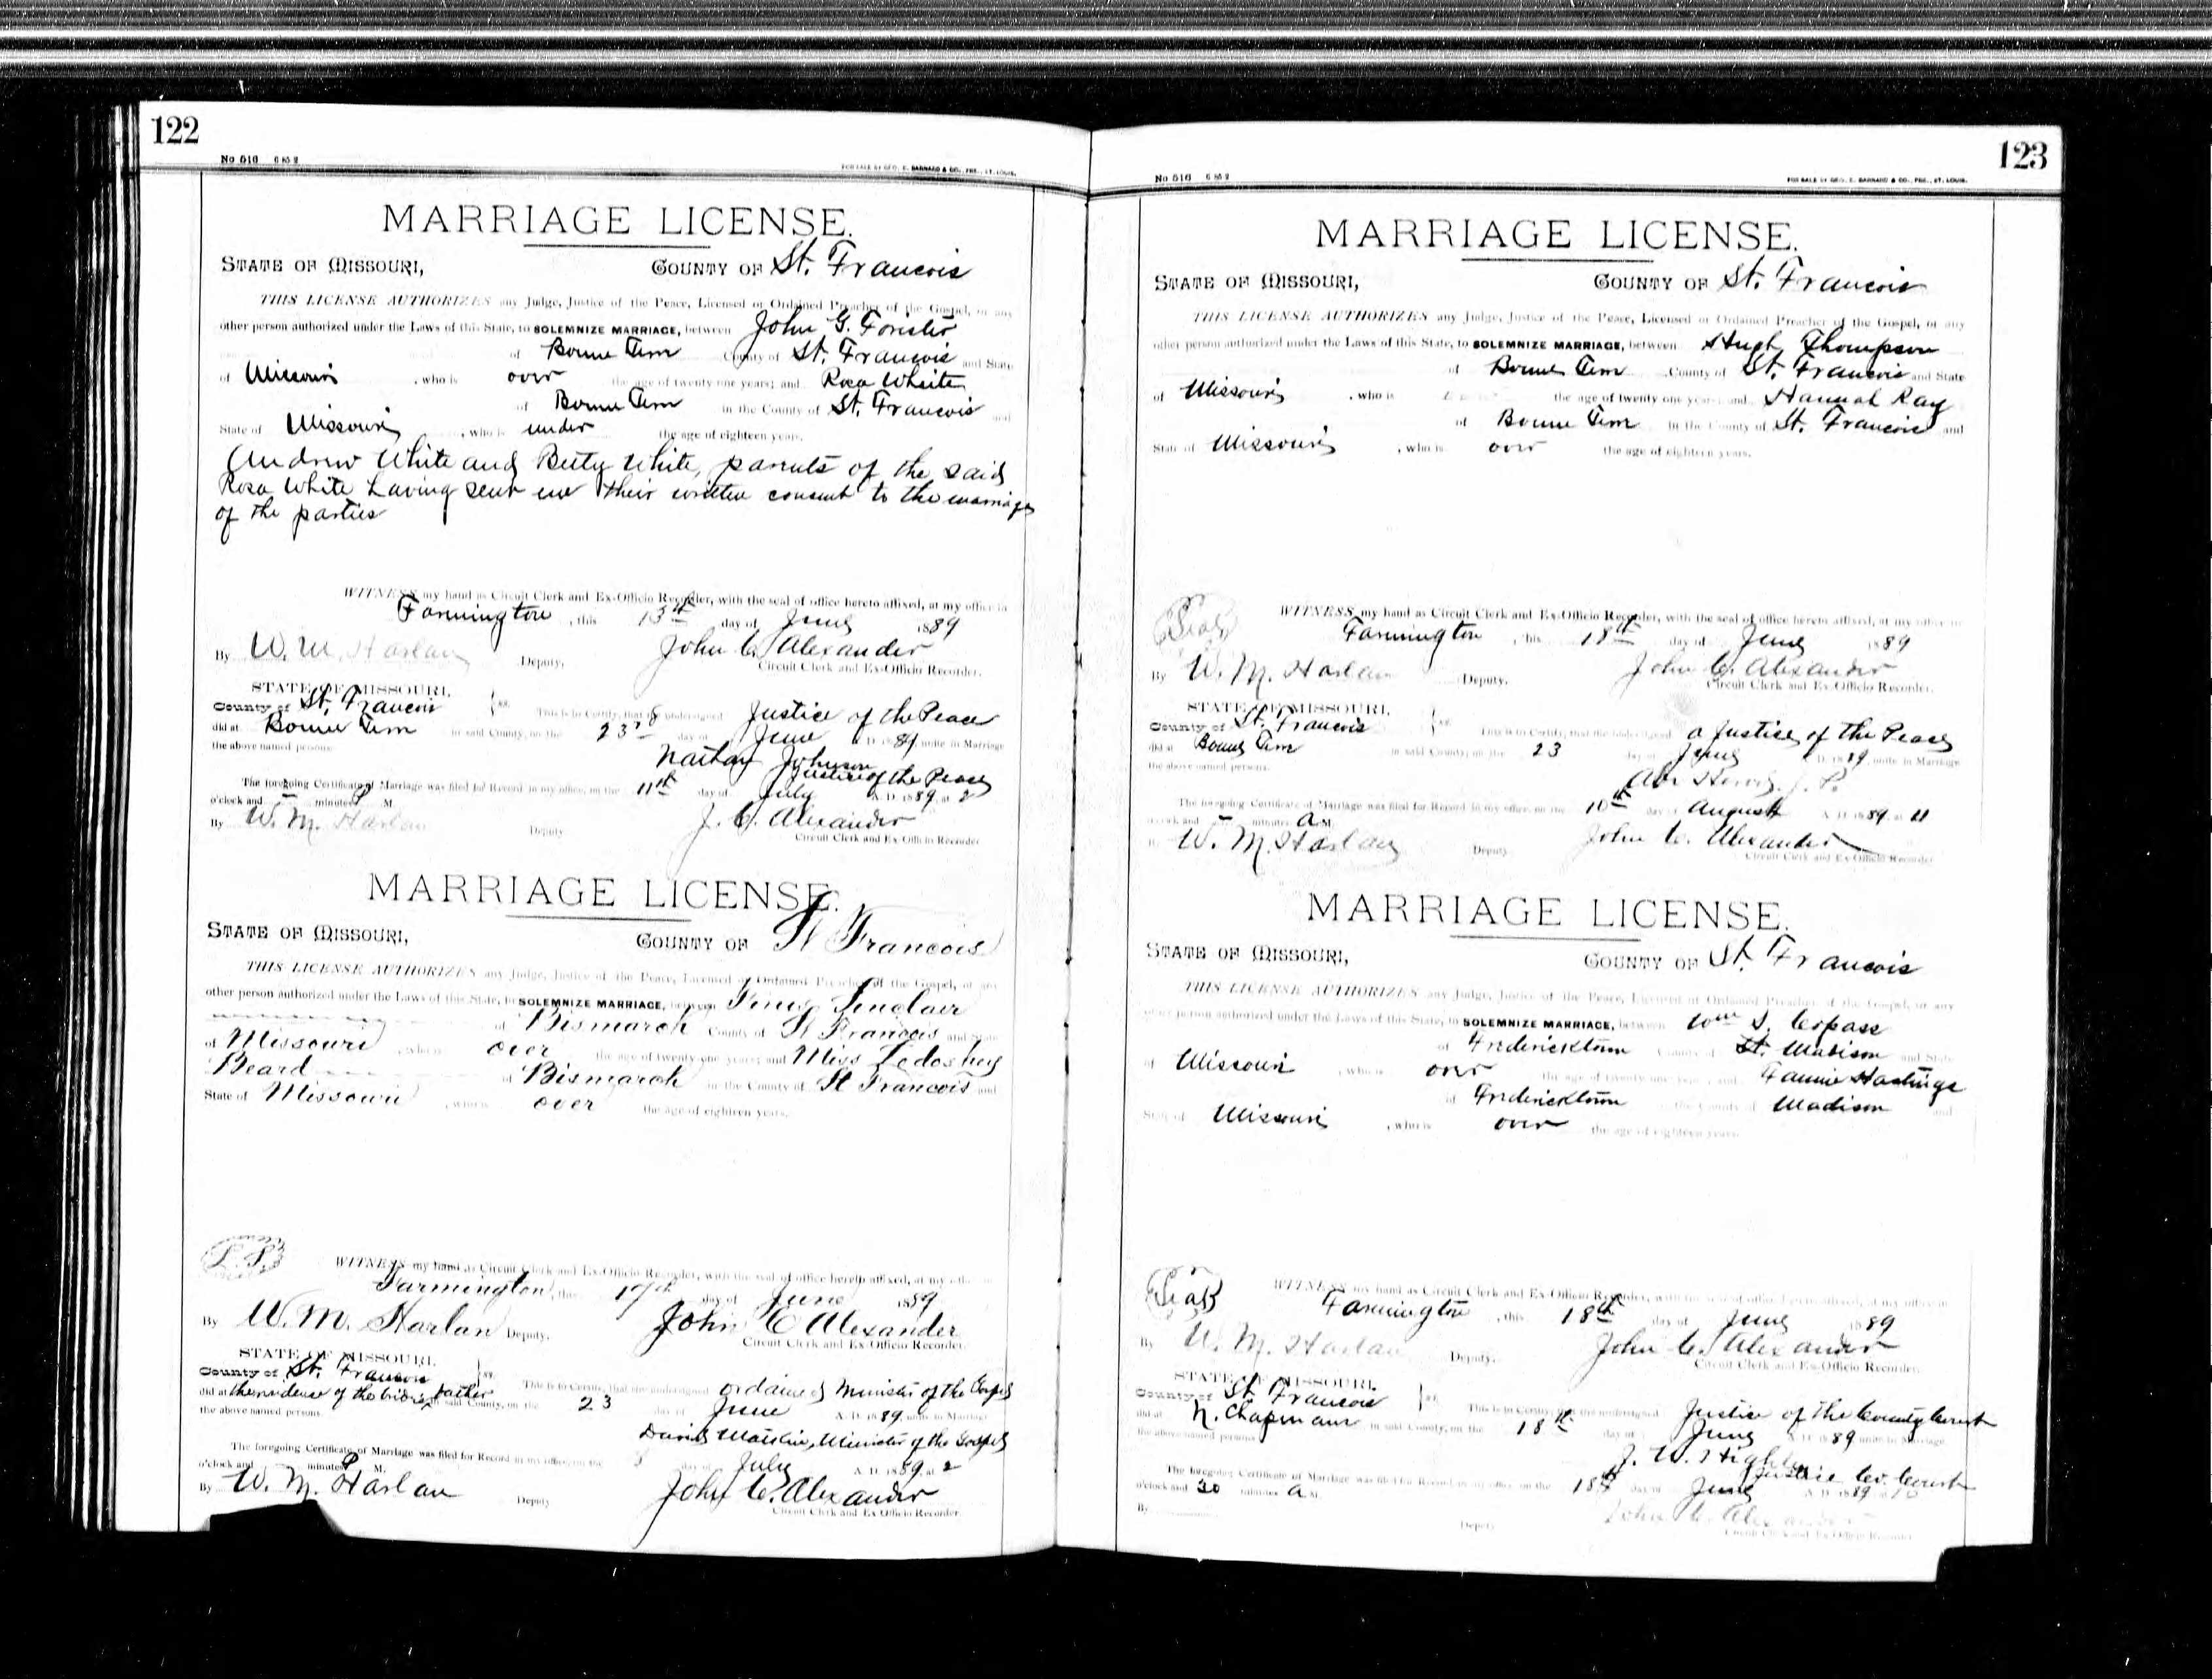 122
No 516 6 85 2
FOR SALE BY GEO. D. BARNARD & CO., PRS., ST. LOUIS.
MARRIAGE LICENSE.
STATE OF MISSOURI, COUNTY OF St. Francois
THIS LICENSE AUTHORIZES any Judge, Justice of the Peace, Licensed or Ordained Preacher of the Gospel, or any
other person authorized under the Laws of this State, to SOLEMNIZE MARRIAGE, between John G. Forister
of Bonne Terre County of St. Francois and State
of Missouri , who is over the age of twenty one years; and Rosa White
of Bonne Terre in the County of St. Francois and
State of Missouri , who is under the age of eighteen years.
Andrew White and Betty White, parents of the said
Rosa White having sent me their written consent to the marriage
of the parties
WITNESS my hand as Circuit Clerk and Ex-Officio Recorder, with the seal of office hereto affixed, at my office in
Farmington , this 13th day of June 1889
By W. M. Harlan Deputy. John C. Alexander
Circuit Clerk and Ex-Officio Recorder.
STATE OF MISSOURI,
County of St. Francois ss. This is to Certify, that the undersigned Justice of the Peace
did at Bonne Terre in said County, on the 23d day of June A. D. 1889 unite in Marriage
the above named persons.
Nathan Johnson
Justice of the Peace
The foregoing Certificate of Marriage was filed for Record in my office, on the 11th day of July A. D. 1889 at 2
o'clock and — minutes P M.
By W. M. Harlan Deputy J. C. Alexander
Circuit Clerk and Ex-Officio Recorder
MARRIAGE LICENSE.
STATE OF MISSOURI, COUNTY OF St Francois
THIS LICENSE AUTHORIZES any Judge, Justice of the Peace, Licensed or Ordained Preacher of the Gospel, or any
other person authorized under the Laws of this State, to SOLEMNIZE MARRIAGE, between Sinclair
of Bismarch County of St Francois and State
of Missouri , who is over the age of twenty one years; and Miss
Beard of Bismarch in the County of St Francois and
State of Missouri , who is over the age of eighteen years.
L. S.
WITNESS my hand as Circuit Clerk and Ex-Officio Recorder, with the seal of office hereto affixed, at my office in
Farmington , this 17th day of June 1889
By W. M. Harlan Deputy. John C Alexander
Circuit Clerk and Ex-Officio Recorder.
STATE OF MISSOURI,
County of St. Francois ss. This is to Certify, that the undersigned ordained Minister of the Gospel
did at the residence of the brides father in said County, on the 23 day of June A. D. 1889 unite in Marriage
the above named persons.
David Minister of the Gospel
The foregoing Certificate of Marriage was filed for Record in my office, on the 8 day of July A. D. 1889 at 2
o'clock and minutes P M.
By W. M. Harlan Deputy John C. Alexander
Circuit Clerk and Ex Officio Recorder.
123
No 516 6 85 2
FOR SALE BY GEO. D. BARNARD & CO., PRS., ST. LOUIS.
MARRIAGE LICENSE.
STATE OF MISSOURI, COUNTY OF St. Francois
THIS LICENSE AUTHORIZES any Judge, Justice of the Peace, Licensed or Ordained Preacher of the Gospel, or any
other person authorized under the Laws of this State, to SOLEMNIZE MARRIAGE, between Hugh Thompson
of Bonne Terre County of St. Francois and State
of Missouri , who is the age of twenty one years; and Hannah Ray
of Bonne Terre in the County of St. Francois and
State of Missouri , who is over the age of eighteen years.
Seal
WITNESS my hand as Circuit Clerk and Ex-Officio Recorder, with the seal of office hereto affixed, at my office in
Farmington , this 18th day of June 1889
By W. M. Harlan Deputy. John C. Alexander
Circuit Clerk and Ex-Officio Recorder.
STATE OF MISSOURI,
County of St. Francois ss. This is to Certify, that the undersigned a Justice of the Peace
did at Bonne Terre in said County, on the 23 day of June A. D. 1889 unite in Marriage
the above named persons.
J. P.
The foregoing Certificate of Marriage was filed for Record in my office, on the 10th day of August A. D. 1889 at 11
o'clock and — minutes A M.
By W. M. Harlan Deputy John C. Alexander
Circuit Clerk and Ex-Officio Recorder
MARRIAGE LICENSE.
STATE OF MISSOURI, COUNTY OF St. Francois
THIS LICENSE AUTHORIZES any Judge, Justice of the Peace, Licensed or Ordained Preacher of the Gospel, or any
other person authorized under the Laws of this State, to SOLEMNIZE MARRIAGE, between Wm S.
of Fredericktown County of Madison and State
of Missouri , who is over the age of twenty one years; and Fannie Hastings
of Fredericktown in the County of Madison and
State of Missouri , who is over the age of eighteen years.
Seal
WITNESS my hand as Circuit Clerk and Ex-Officio Recorder, with the seal of office hereto affixed, at my office in
Farmington , this 18th day of June 1889
By W. M. Harlan Deputy. John C. Alexander
Circuit Clerk and Ex-Officio Recorder.
STATE OF MISSOURI,
County of St Francois ss. This is to Certify, that the undersigned Justice of the County Court
did at N. Chapman in said County, on the 18th day of June A. D. 1889 unite in Marriage
the above named persons.
J. W. Highley
Justice Co. Court
The foregoing Certificate of Marriage was filed for Record in my office, on the 18th day of June A. D. 1889 at 10
o'clock and 30 minutes A M.
By Deputy John C. Alexander
Circuit Clerk and Ex-Officio Recorder